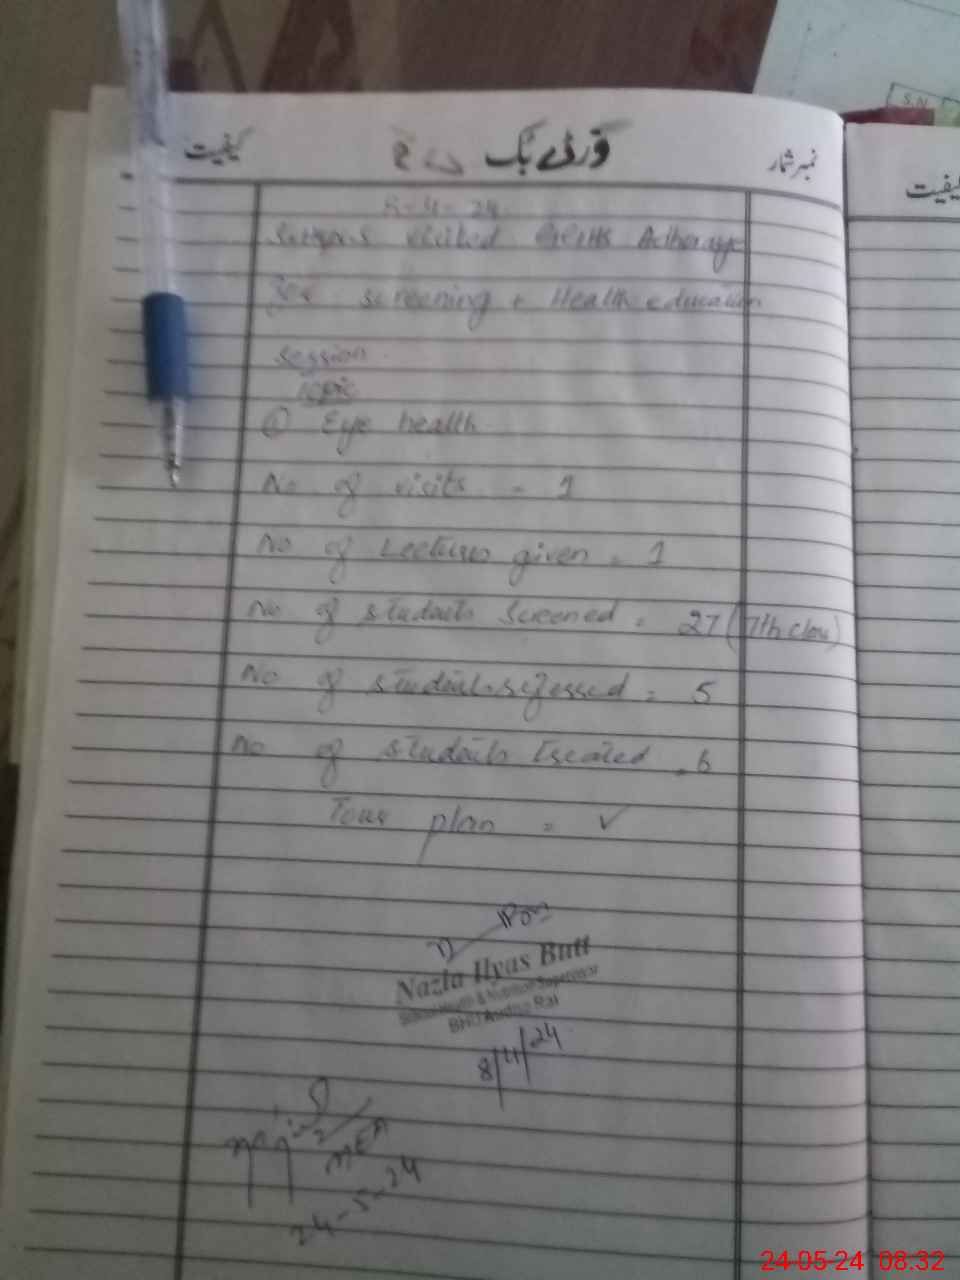 کیفیت
نمبر شمار
8-4-24
visited GGHS
For screening + Health education
session
Topic
① Eye health
No of visits = 1
No of Lectures given = 1
No of students screened = 27 (7th class)
No of students referred = 5
No of students treated = 6
Tour plan = ✓
Nazla Ilyas Butt
School Health & Nutrition Supervisor
BHU
8/4/24
MEA
24-5-24
کیفیت
S.N
24-05-24 08:32